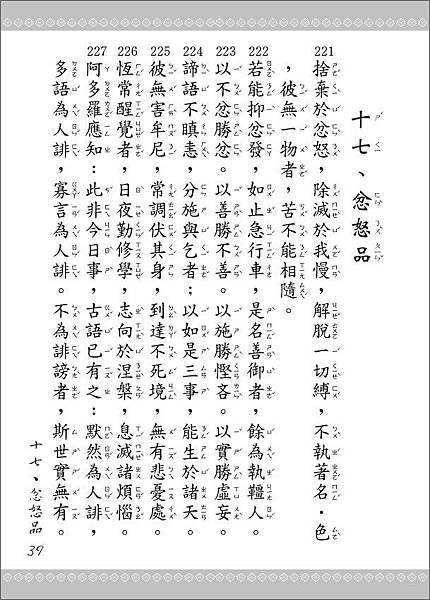 十七、忿怒品
221 捨棄於忿怒，除滅於我慢，解脫一切縛，不執著名·色
，彼無一物者，苦不能相隨。
222 若能抑忿發，如止急行車，是名善御者，餘為執韁人。
223 以不忿勝忿。以善勝不善。以施勝慳吝。以實勝虛妄。
224 諦語不瞋恚，分施與乞者；以如是三事，能生於諸天。
225 彼無害牟尼，常調伏其身，到達不死境，無有悲憂處。
226 恆常醒覺者，日夜勤修學，志向於涅槃，息滅諸煩惱。
227 阿多羅應知：此非今日事，古語已有之：默然為人誹，
多語為人誹，寡言為人誹。不為誹謗者，斯世實無有。
十七、忿怒品
39